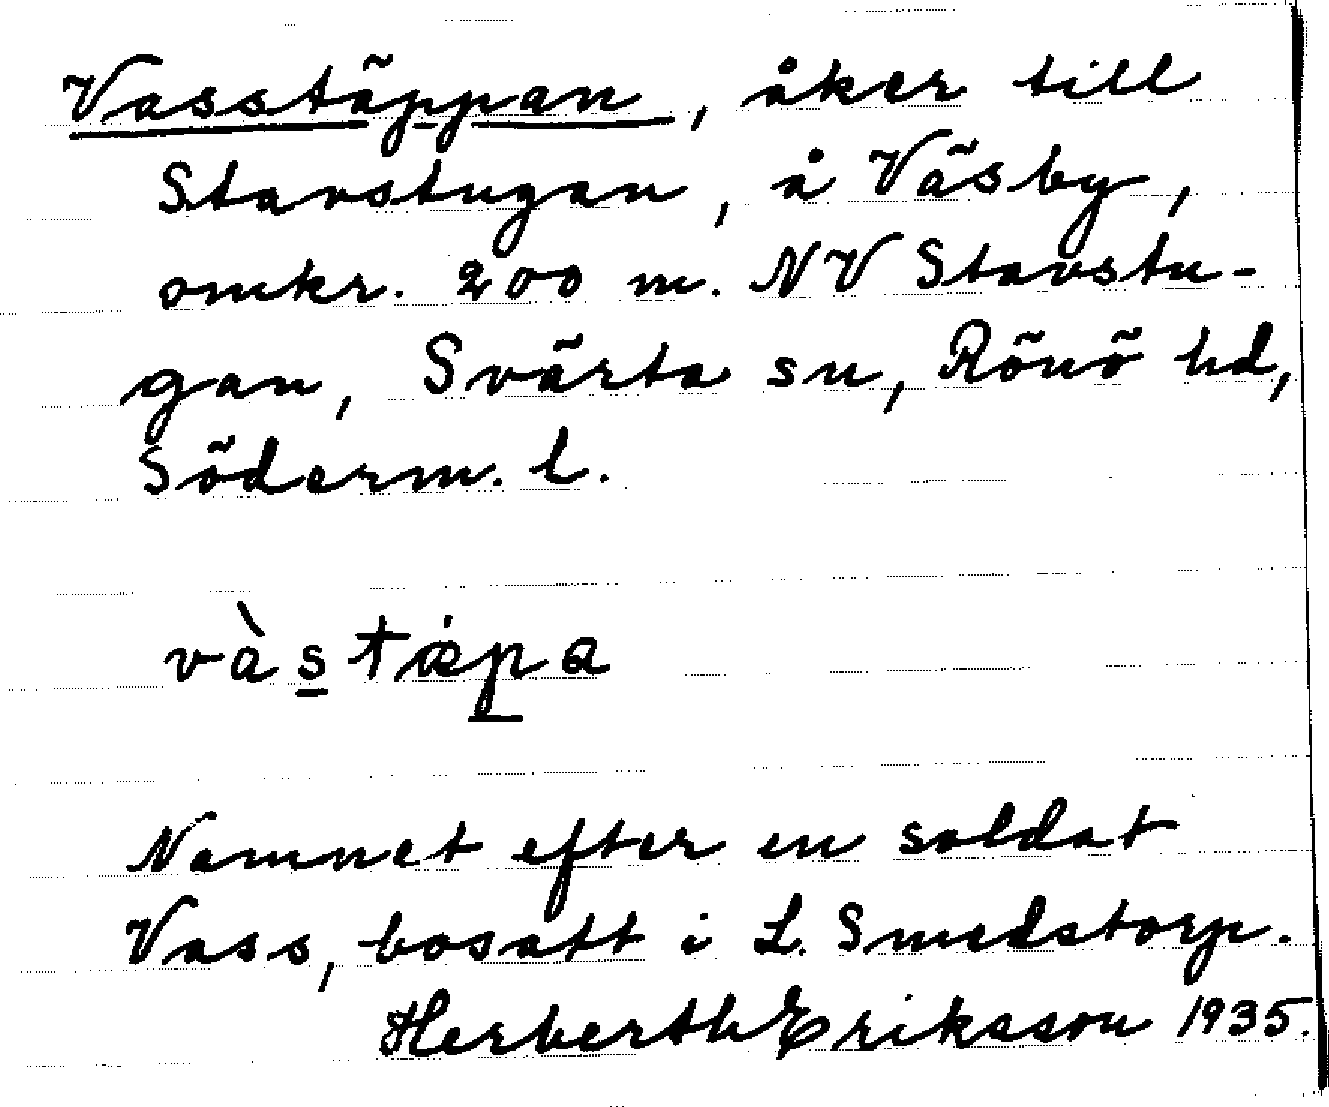 Vasstäppan, åker till
Stavstugan, å Väsby,
omkr. 200 m. NV Stavstu-
gan, Svärta sn, Rönö hd,
Söderm. l.
vàstæ̇pa
Namnet efter en soldat
Vass, bosatt i L. Smedstorp.
Herberth Eriksson 1935.